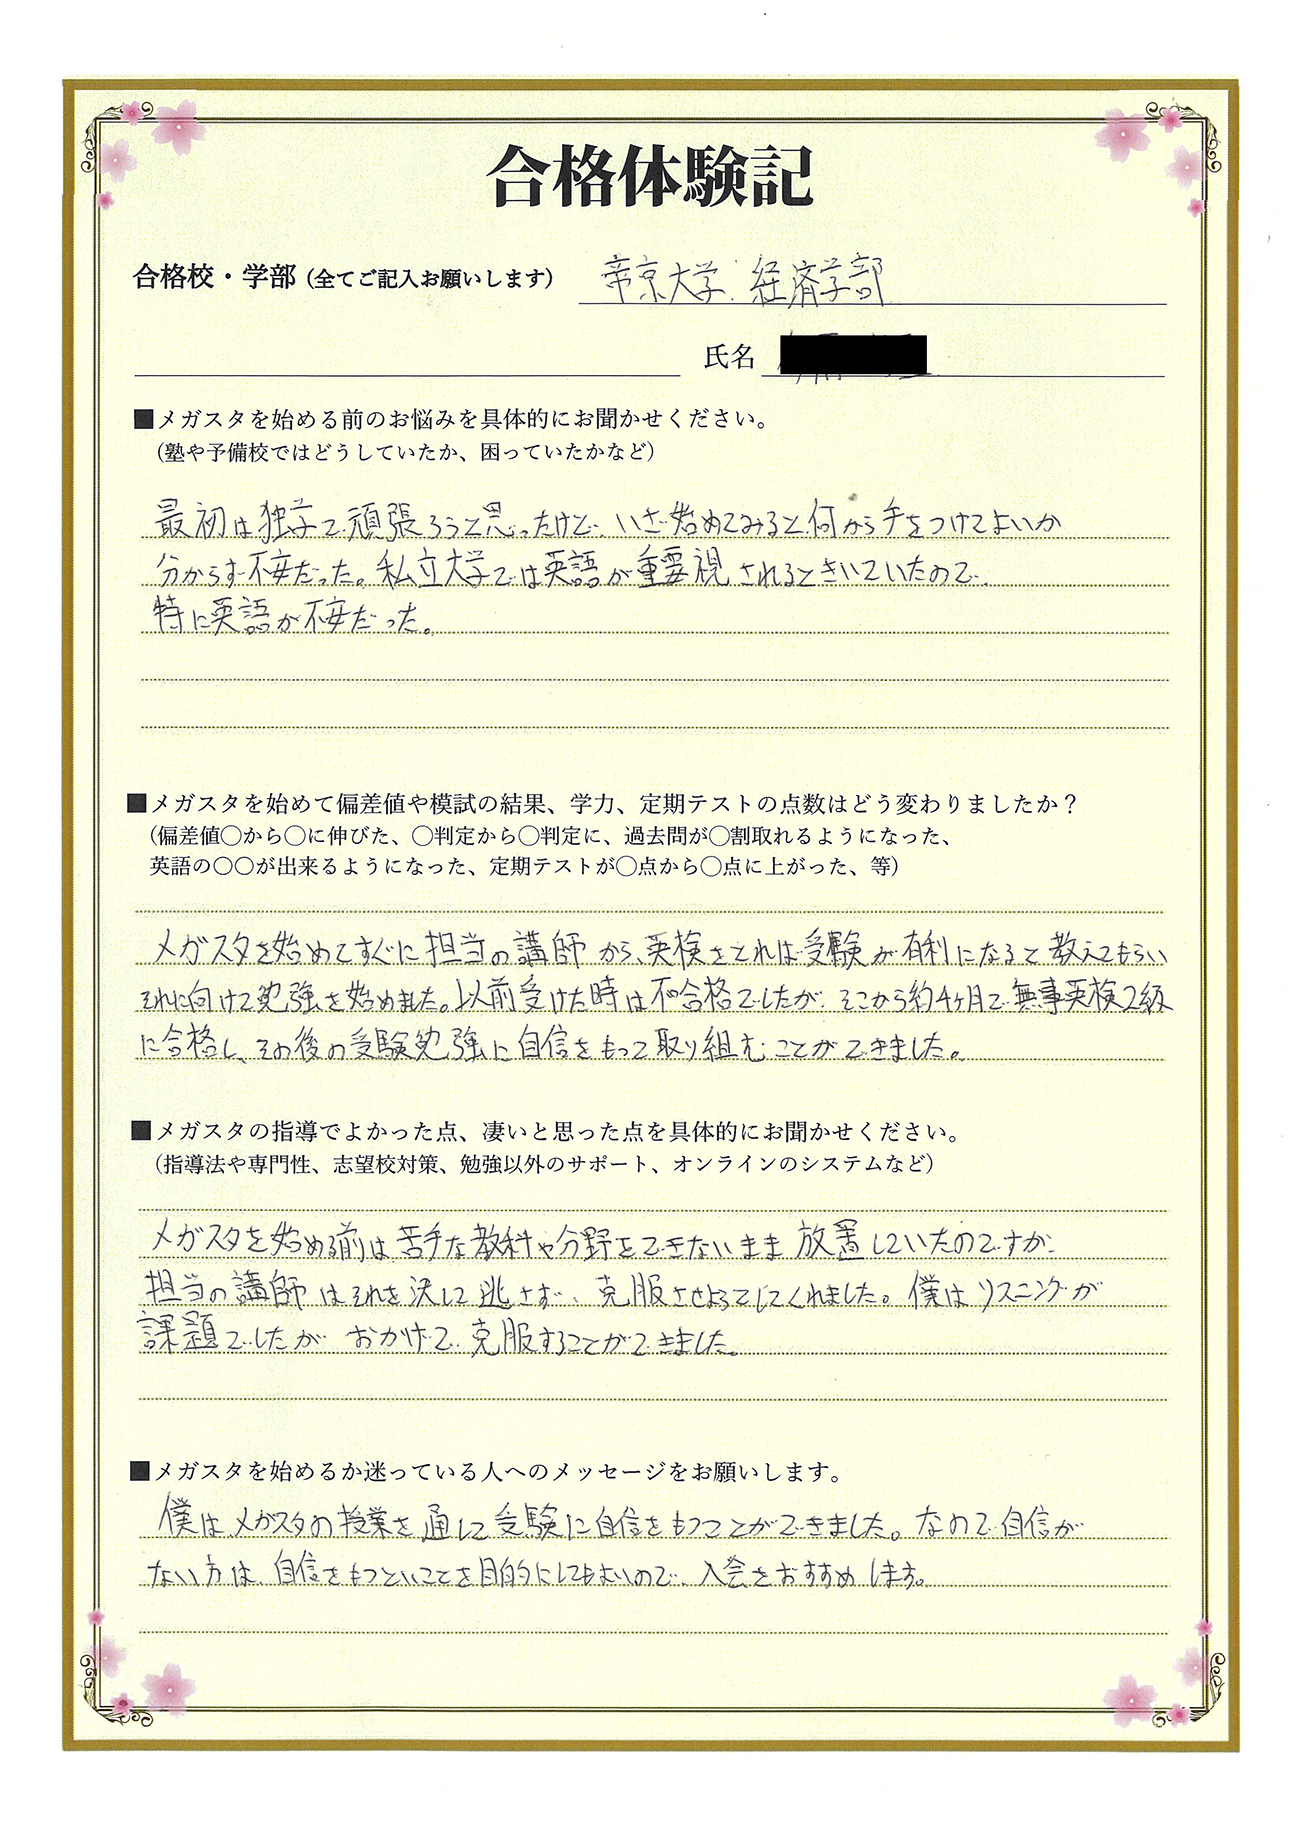 合格体験記
合格校・学部（全てご記入お願いします） 帝京大学 経済学部
氏名
■メガスタを始める前のお悩みを具体的にお聞かせください。
（塾や予備校ではどうしていたか、困っていたかなど）
最初は独学で頑張ろうと思ったけど、いざ始めてみると何から手をつけてよいか
分からず不安だった。私立大学では英語が重要視されるときいていたので、
特に英語が不安だった。
■メガスタを始めて偏差値や模試の結果、学力、定期テストの点数はどう変わりましたか？
（偏差値〇から〇に伸びた、〇判定から〇判定に、過去問が〇割取れるようになった、
英語の〇〇が出来るようになった、定期テストが〇点から〇点に上がった、等）
メガスタを始めてすぐに担当の講師から、英検をとれば受験が有利になると教えてもらい
それに向けて勉強を始めました。以前受けた時は不合格でしたが、そこから約4ヶ月で無事英検2級
に合格し、その後の受験勉強に自信をもって取り組むことができました。
■メガスタの指導でよかった点、凄いと思った点を具体的にお聞かせください。
（指導法や専門性、志望校対策、勉強以外のサポート、オンラインのシステムなど）
メガスタを始める前は苦手な教科や分野をできないまま放置していたのですが、
担当の講師はそれを決して逃さず、克服させようとしてくれました。僕はリスニングが
課題でしたが おかげで、克服することができました。
■メガスタを始めるか迷っている人へのメッセージをお願いします。
僕はメガスタの授業を通して受験に自信をもつことができました。なので自信が
ない方は、自信をもつということを目的にしてもよいので、入会をおすすめします。